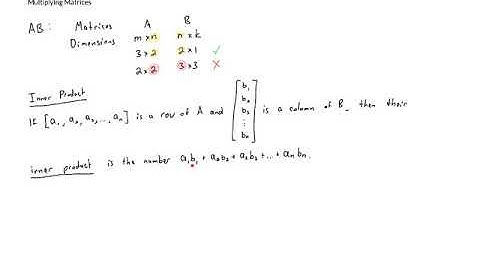 Multiplying Matrices
AB: Matrices A B
Dimensions m×n n×k
3×2 2×1 ✓
2×2 3×3 ✗
Inner Product
If [a₁, a₂, a₃, ..., aₙ] is a row of A and [b₁ b₂ b₃ ⋮ bₙ] is a column of B, then their
inner product is the number a₁b₁ + a₂b₂ + a₃b₃ + ... + aₙbₙ.